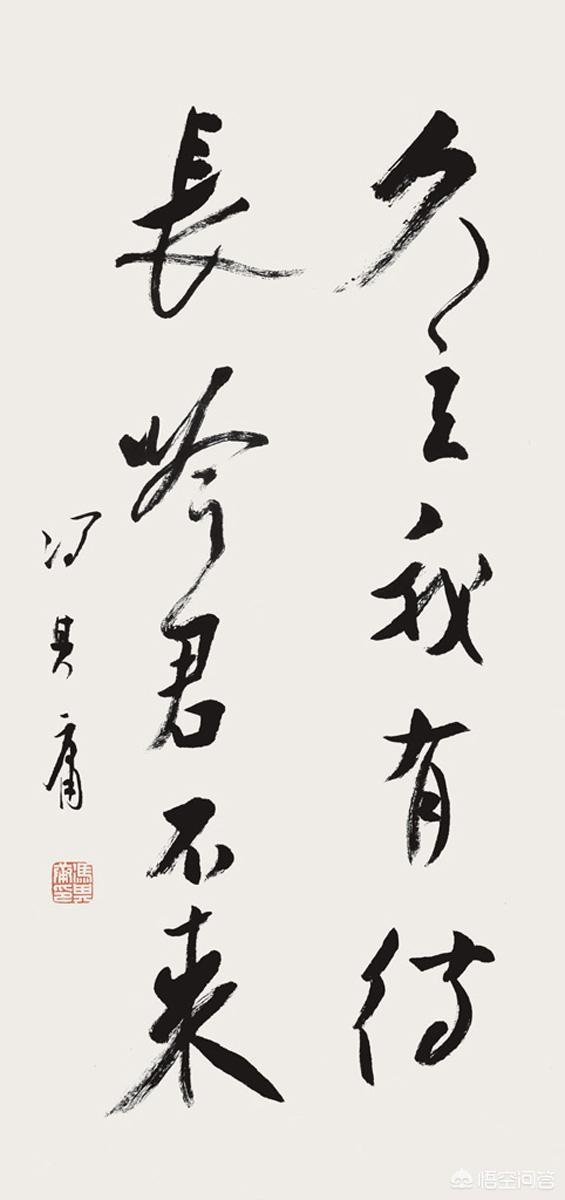 久立我有待
長吟君不来
冯其庸
馮其庸印
悟空问答